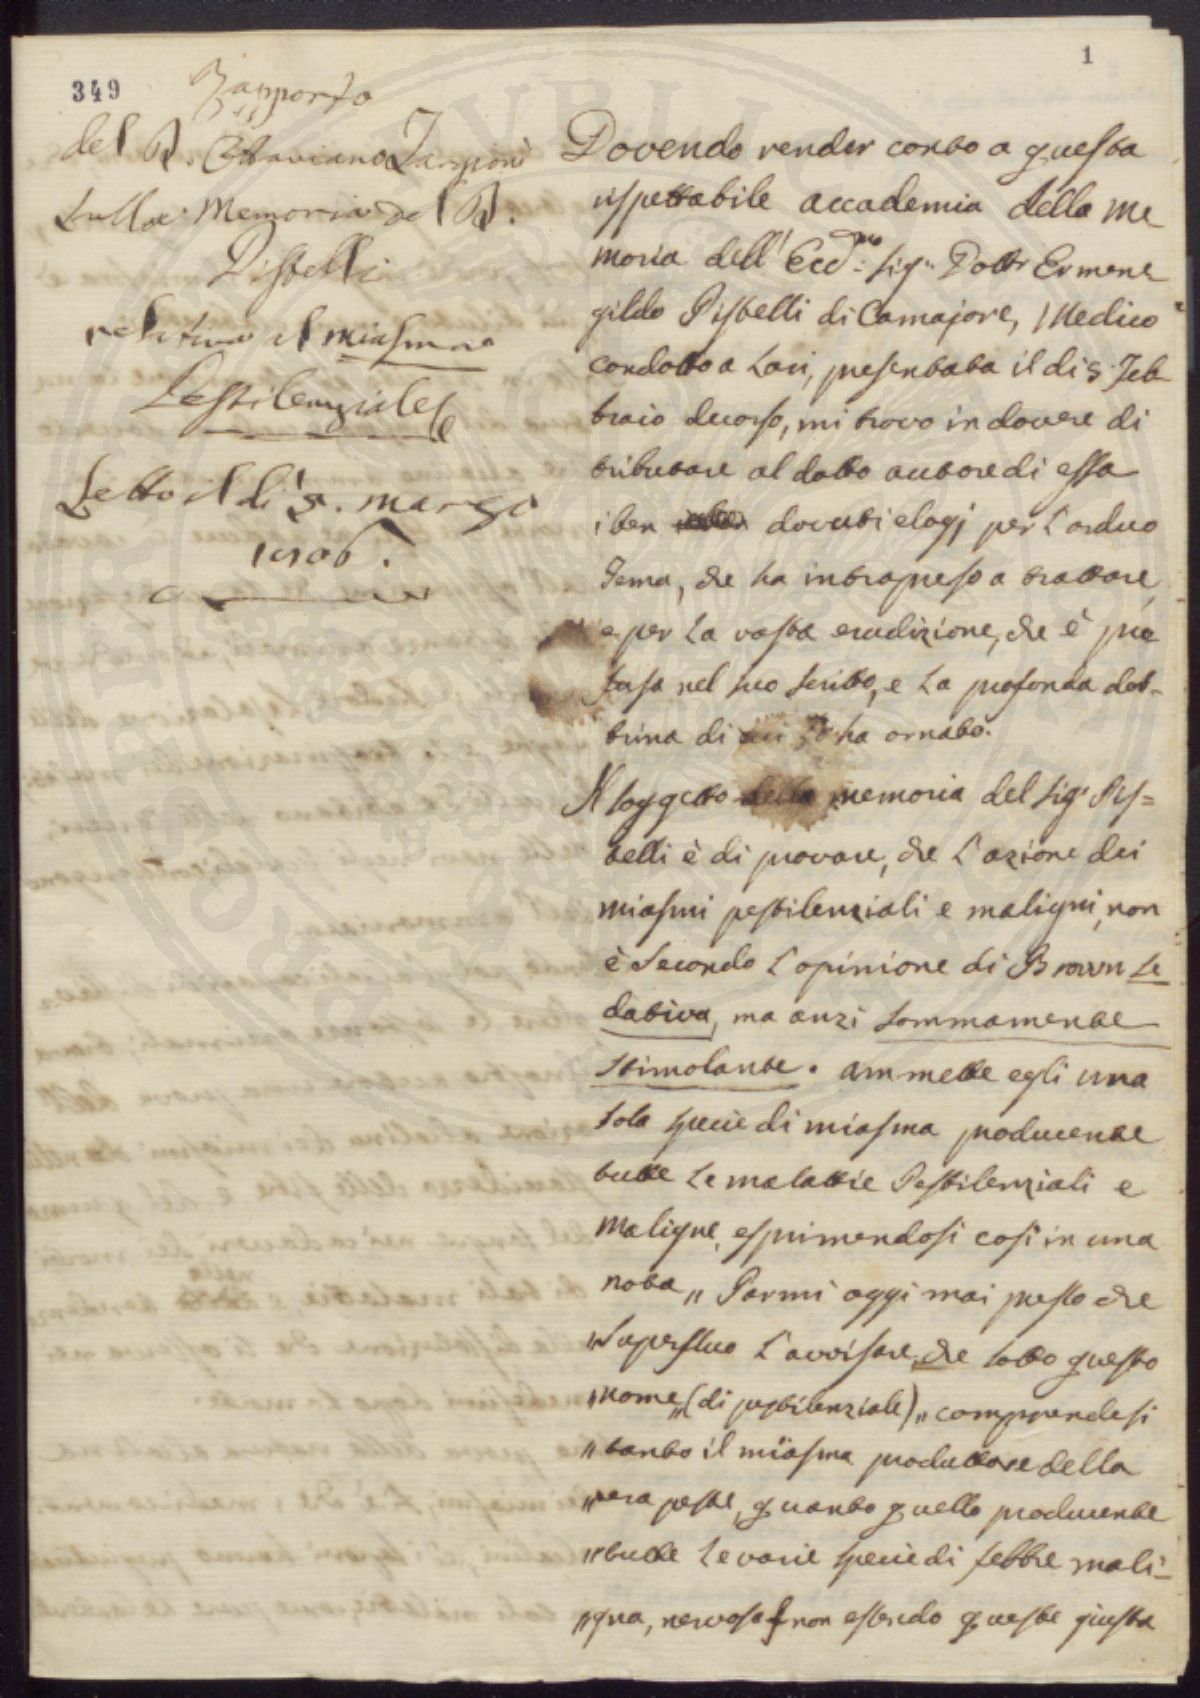 349
1
Rapporto
del D. Ottaviano Targioni
sulla Memoria del D.
Pistelli
relativa al miasma
Pestilenziale
Letto il dì 5. marzo
1806.
Dovendo render conto a questa
rispettabile accademia della me
moria dell' Ecc.mo Sig.r Dottr Ermene
gildo Pistelli di Camajore, Medico
condotto a Lari, presentata il dì 5. Feb
braio decorso, mi trovo in dovere di
tributare al dotto autore di essa
i ben dovuti elogj per l'arduo
Tema, che ha intrapreso a trattare,
e per la vasta erudizione, che è pro
fusa nel suo scritto, e la profonda dot-
trina di cui lo ha ornato.
Il soggetto della memoria del Sig.r Pis=
telli è di provare, che l'azione dei
miasmi pestilenziali e maligni, non
è secondo l'opinione di Brown se
dativa, ma anzi sommamente
stimolante. ammette egli una
sola specie di miasma producente
tutte le malattie Pestilenziali e
maligne, esprimendosi così in una
nota „ Parmi oggi mai presso che
„superfluo l'avvisare, che sotto questo
„nome„ (di pestilenziale) „comprendesi
„tanto il miasma produttore della
„vera peste, quanto quello producente
„tutte le varie specie di febbre mali=
„gna, nervosa non essendo queste giusta